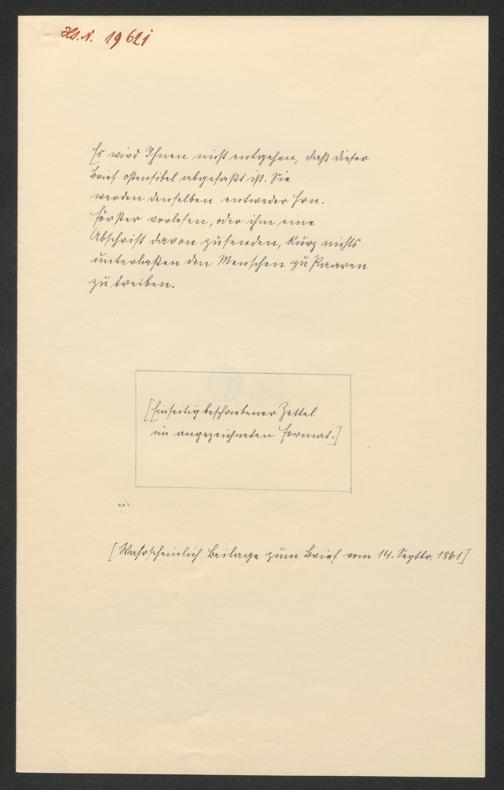 Hs. N. 19621
Es wird Ihnen nicht entgehen, daß dieser
Brief ostensibel abgefaßt ist. Sie
werden denselben entweder Hrn.
Förster vorlesen, oder ihm eine
Abschrift davon zusenden, kurz nichts
unterlaßen den Menschen zu Paaren
zu treiben.
[Einseitig beschriebener Zettel
im angezeichneten Format.]
[Wahrscheinlich Beilage zum Brief vom 14. Septbr. 1861]